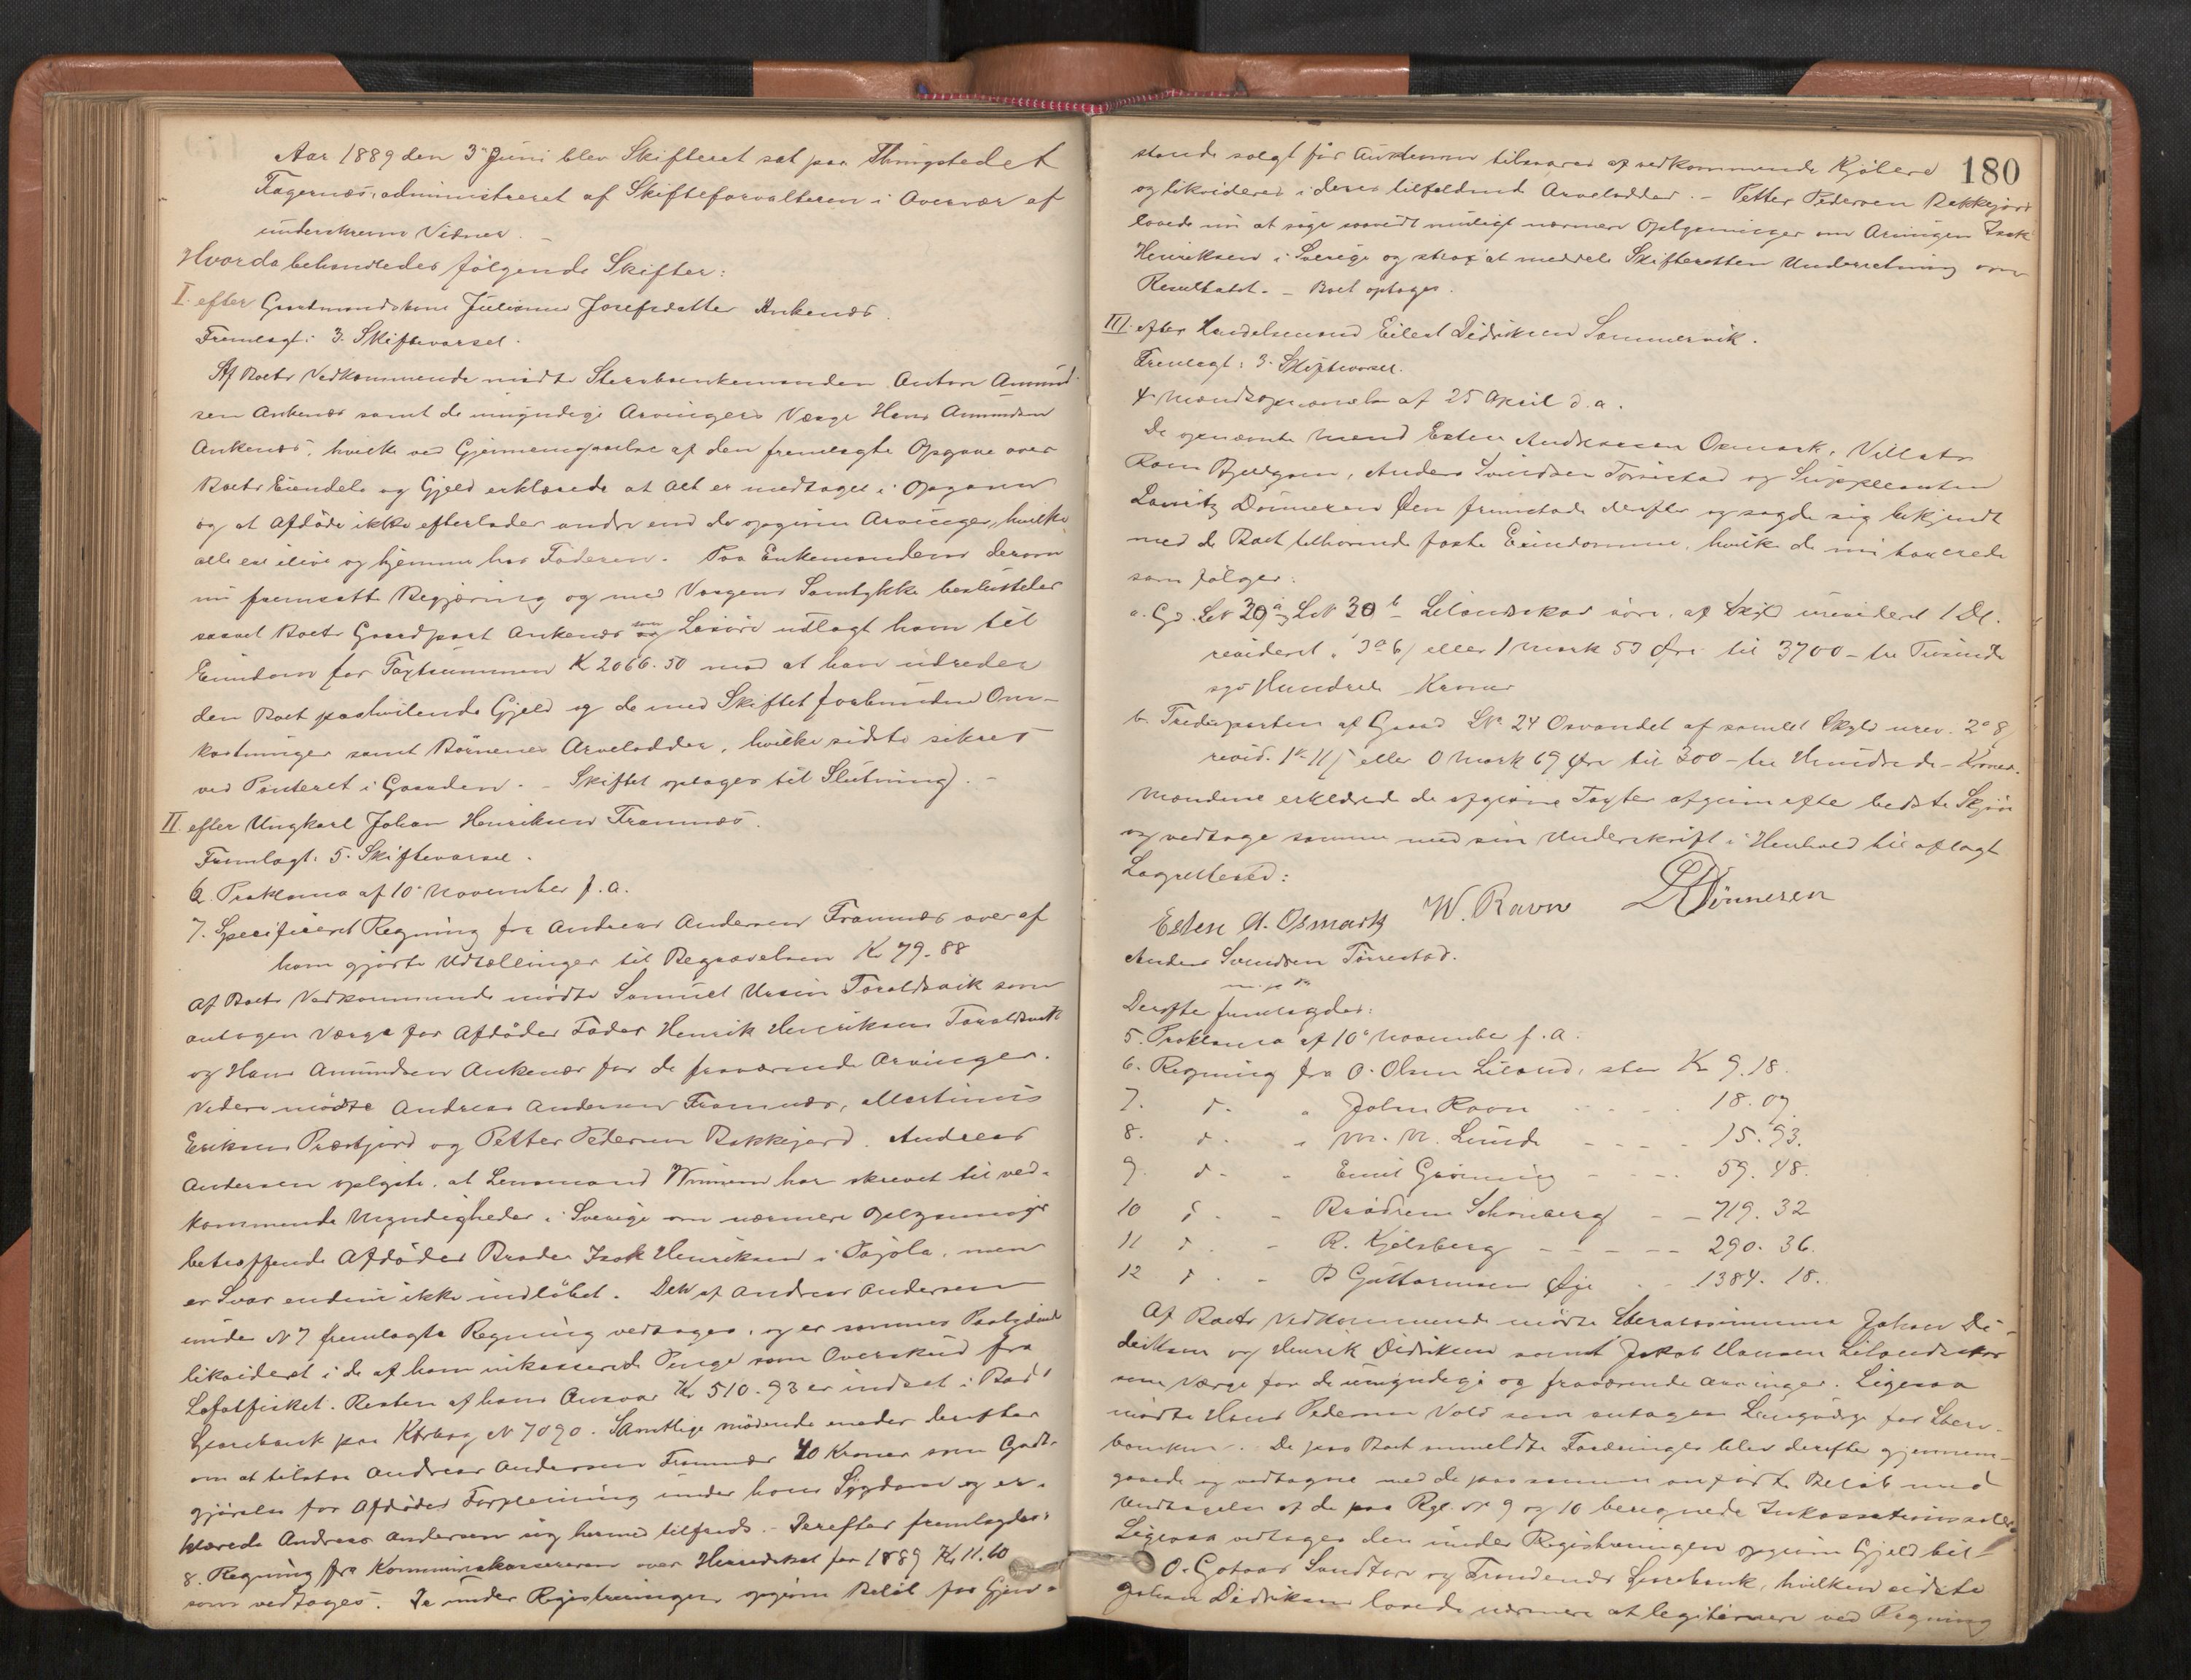 Aar 1889 den 3 Juni blev Skifteret sat paa Thingstedet
Fagernæs, administreret af Skifteforvalteren i Overvær af
underskrevne Vidner.
Hvorda behandledes følgende Skifter:
I. efter Gaardmandskone Julianna Josefsdatter Ankenæs.
Fremlagt: 3. Skiftevarsel.
Af Boets Vedkommende mødte Stervboenkemanden Anton Amund-
sen Ankenæs samt de umyndige Arvingers Værge Hans Amundsen
Ankenæs, hvilke ved Gjennemgaaelse af den fremlagte Opgave over
Boets Eiendele og Gjeld erklærede at Alt er medtaget i Opgaven
og at Afdøde ikke efterlader andre end de opgivne Arvinger, hvilke
alle ere ilive og hjemme hos Faderen. Paa Enkemandens derom
nu fremsatte Begjæring og med Værgens Samtykke besluttedes
saavel Boets Gaardpart Ankenæs som Løsøre udlagt ham til
Eiendom for Taxtsummen K 2066.50 mod at han udreder
den Boet paahvilende Gjeld og de med Skiftet forbundne Om-
kostninger samt Børnenes Arvelodder, hvilke sidste sikres
ved Panteret i Gaarden. - Skiftet optages til Slutning). -
II. efter Ungkarl Johan Henriksen Framnæs.
Fremlagt: 5. Skiftevarsel.
6. Proklama af 10 November f. a.
7. Specificeret Regning fra Andreas Andersen Framnæs over af
ham gjorte Udtællinger til Begravelsen K 79.88
Af Boets Vedkommende mødte Samuel Ursin Taraldsvik som
antagen Værge for Afdødes Fader Henrik Henriksen Taraldsvik
og Hans Amundsen Ankenæs for de fraværende Arvinger.
Videre mødte Andreas Andersen Framnæs, Martinus
Eriksen Præstjord og Petter Pedersen Bakkejord. Andreas
Andersen oplyste, at Lensmand Wiimann har skrevet til ved-
kommende Myndigheder i Sverige om nærmere Oplysninger
betræffende Afdødes Broder Isak Henriksen i Pajala, men
er Svar endnu ikke indløbet. Den af Andreas Andersen
under N 7 fremlagte Regning vedtages, og er sammes Paalydende
likvideret i de af ham inkasserede Penge som Overskud fra
Lofotfisket. Resten af hans Ansvar Kr 510.93 er indsat i Bodø
Sparebank paa Ktrbog N 7090. Samtlige mødende eneder derefter
om at tilstaa Andreas Andersen Framnæs 40 Kroner som Godt-
gjørelse for Afdødes Forpleining under hans Sygdom og er-
klærede Andreas Andersen sig hermed tilfreds. - Derefter fremlagdes:
8. Regning fra Kommunekassereren over Herredskat for 1889 Kr 11.60
som vedtages. De under Registreringen opgivne Beløb for Gjen-
180
stande solgt før Auktionen tilsvares af vedkommende Kjøbere
og likvideres i deres tilfaldende Arvelodder. - Petter Pedersen Bakkejord
lovede nu at søge saavidt muligt nærmere Oplysninger om Arvingen Isak
Henriksen i Sverige og strax at meddele Skifteretten Underretning om
Resultatet. - Boet optages.
III. efter Handelsmand Eilert Didriksen Sommervik.
Fremlagt: 3. Skiftevarsel.
4. Mandsopnævnelse af 25 April d. a.
De opnævnte Mænd Esten Andreassen Osmark, Villats
Ravn, Anders Svendsen Tømstad og Suppleanten
Lauritz Dønnesen Øien fremstode derefter og sagde sig bekjendt
med de Boet tilhørende faste Eiendomme, hvilke de nu taxerede
som følger:
a. Gd. LN 30 a og LN 30 b Lilandskar søre, af Skyld urevideret 1 Dl.
revideret 3 6 eller 1 Mark 53 Øre til 3700 - tre Tusinde
syv Hundrede Kroner
b. Trediparten af Gaard LN 24 Osvandet af samlet Skyld urev. 2 8
revid. 1 11 eller 0 Mark 69 Øre til 300 - tre Hundrede - Kroner.
Mændene erklærede de afgivne Taxter afgivne efter bedste Skjøn
og vedtage samme med sin Underskrift i Henhold til aflagt
Lagretteed:
Esten A. Osmark W. Ravn L Dønnesen
Anders Svendsen Tømestad.
m. p. P.
Derefter fremlagdes:
5. Proklama af 10 November f. a.
6. Regning fra O. Olsen Liland, stor K 9.18.
7. d. " John Ravn - - - 18.07
8. d. " M. N. Lunde - - - 15.93.
9. d. - Emil Grønning - - - 59.48.
10 d. - Brødrene Schønberg - - 719.32
11 d. - R. Kjelsberg - - - - 290.36.
12 d. - P Guttormsen Øje - - 1384.18.
Af Boets Vedkommende mødte Stervbosønnerne Johan Di-
driksen og Henrik Didriksen samt Jakob Hansen Lilandskar
som Værge for de umyndige og fraværende Arvinger. Ligesaa
mødte Hans Pedersen Vold som antagen Laugværge for Sterv-
boenken. De paa Boet anmeldte Fordringer blev derefter gjennem-
gaaede og vedtagne med de paa samme anførte Beløb med
Undtagelse af de paa Rgl. N 9 og 10 beregnede Inkassationssalærer
Ligesaa vedtages den under Registreringen opgivne Gjeld til
O. Gotaas Sandtorv og Trondenæs Sparebank, hvilken sidste
Johan Didriksen lovede nærmere at legitimere ved Regning